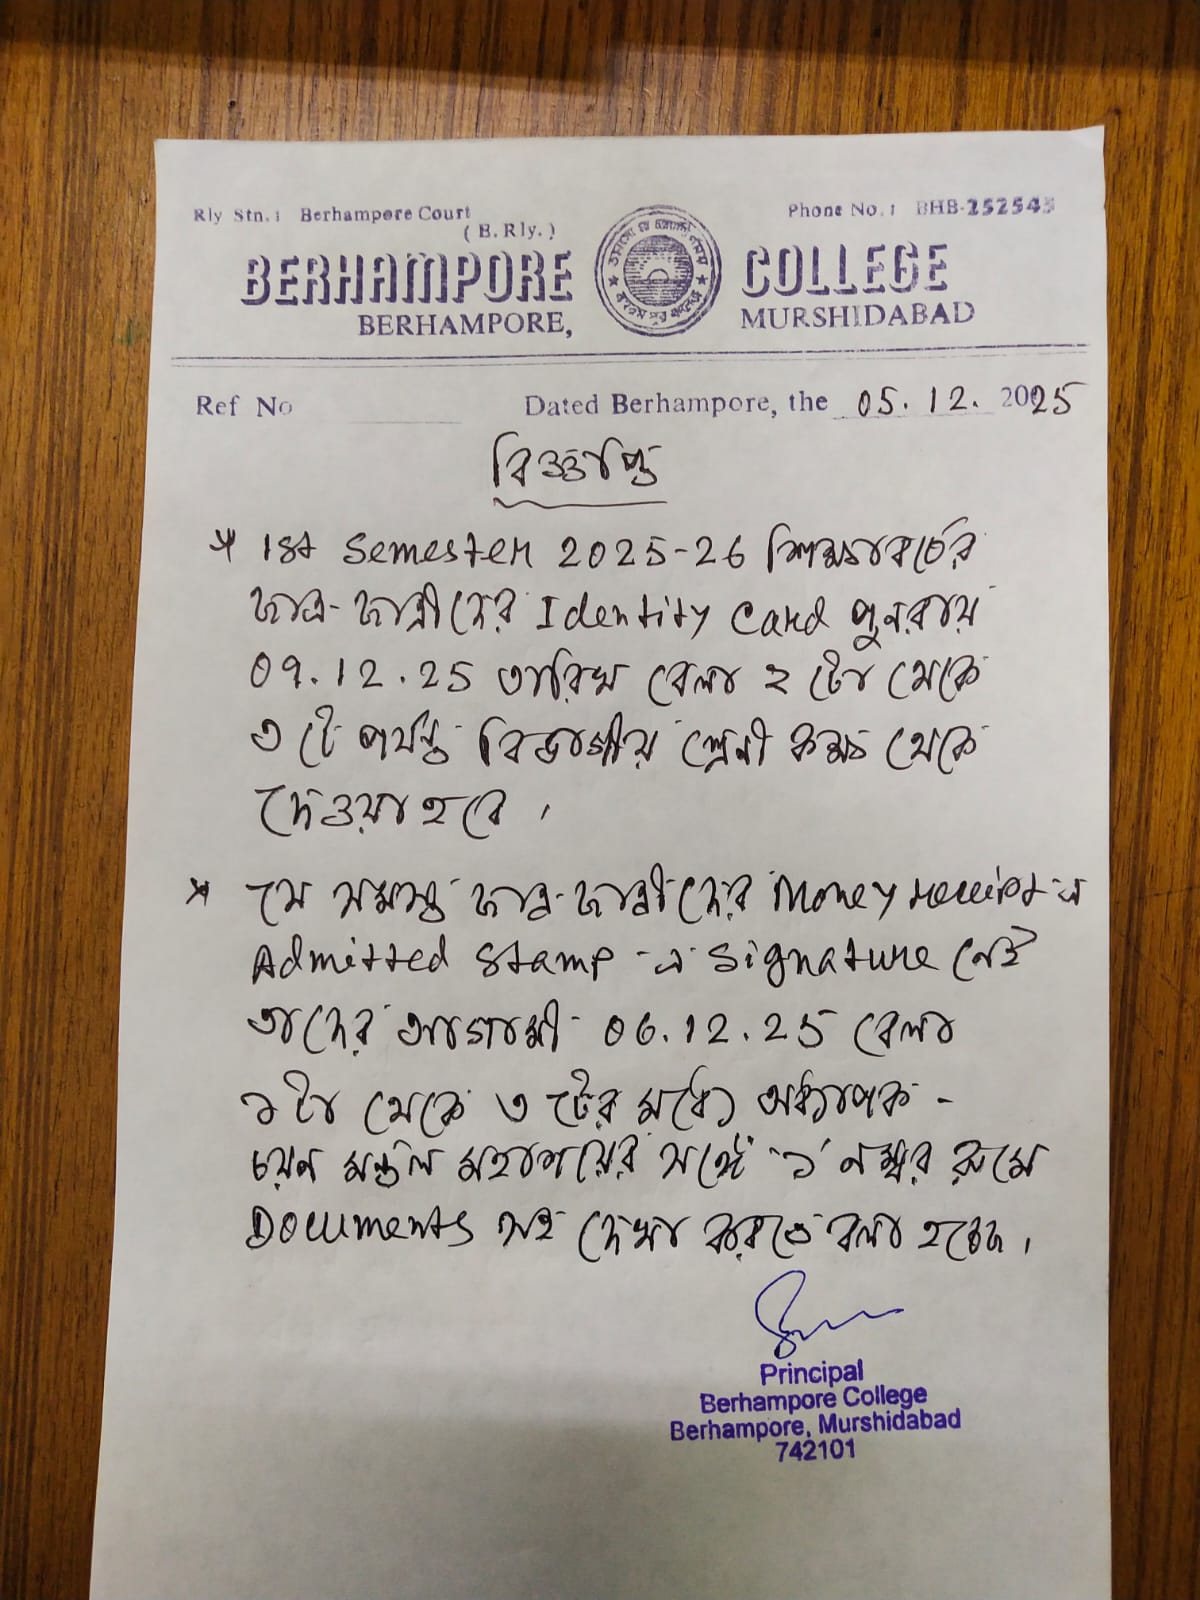 Rly Stn. : Berhampore Court
( B. Rly. )
Phone No. : BHB-252545
BERHAMPORE COLLEGE
BERHAMPORE, MURSHIDABAD
Ref No
Dated Berhampore, the 05.12. 2025
বিজ্ঞপ্তি
* 1st Semester 2025-26 শিক্ষাবর্ষের
ছাত্র-ছাত্রীদের Identity Card পুনরায়
09.12.25 তারিখ বেলা ২ টো থেকে
৩ টে পর্যন্ত বিভাগীয় শ্রেনী কক্ষ থেকে
দেওয়া হবে।
* যে সমস্ত ছাত্র-ছাত্রীদের Money receipt-এ
Admitted Stamp-এ Signature নেই
তাদের আগামী 06.12.25 বেলা
১টা থেকে ৩ টের মধ্যে অধ্যাপক -
চয়ন মন্ডল মহাশয়ের সঙ্গে '১' নম্বর রুমে
Documents সহ দেখা করতে বলা হচ্ছে।
Principal
Berhampore College
Berhampore, Murshidabad
742101